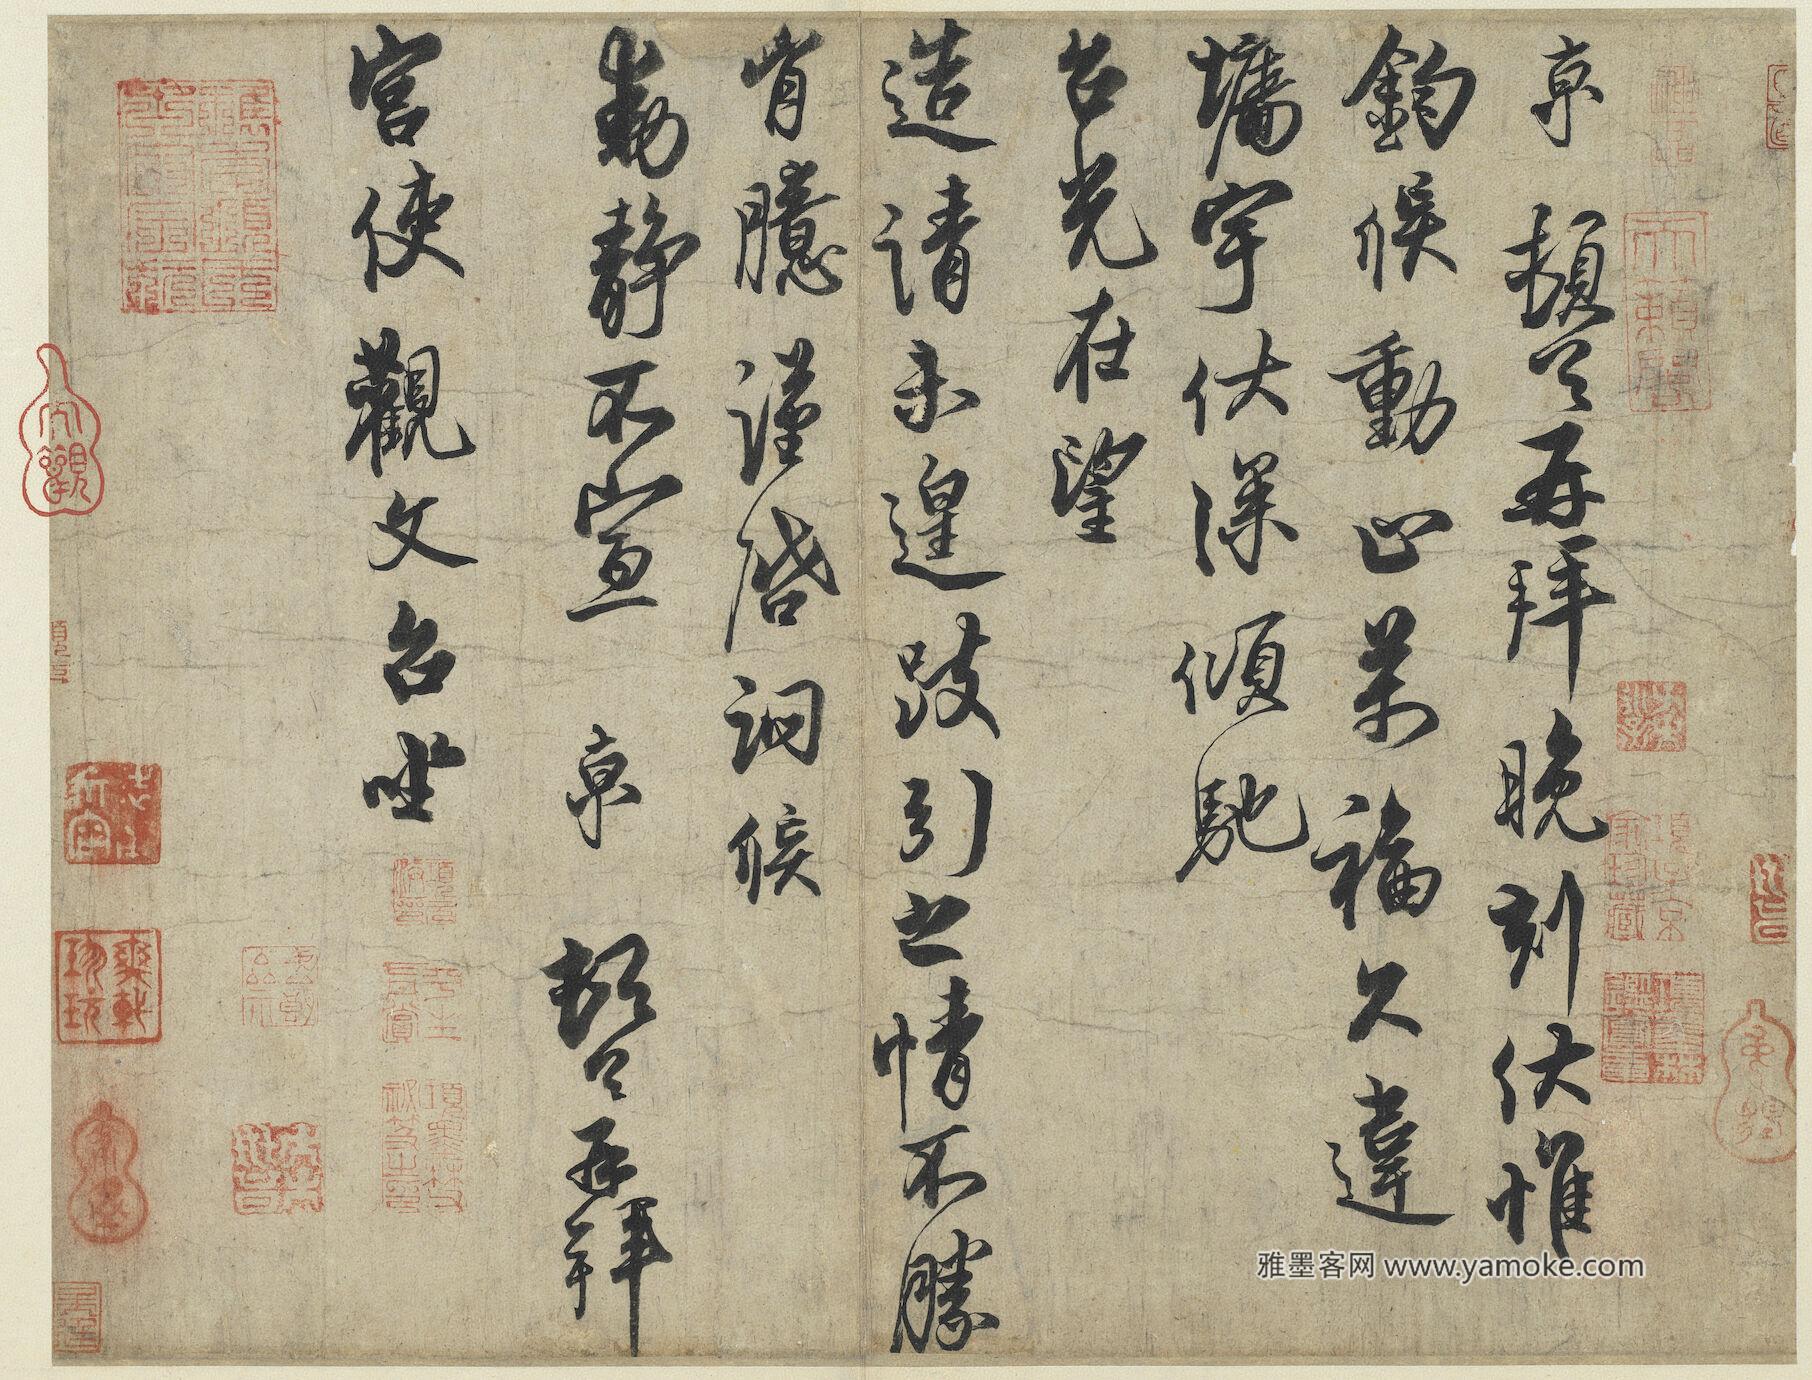 京頓首再拜晚刻伏惟
鈞候動止萬福久違
墉宇伏深傾馳
台光在望
造請未遑跂引之情不勝
胷臆謹啓詗候
動靜不宣 京 頓首再拜
宮使觀文台坐
雅墨客网 www.yamoke.com